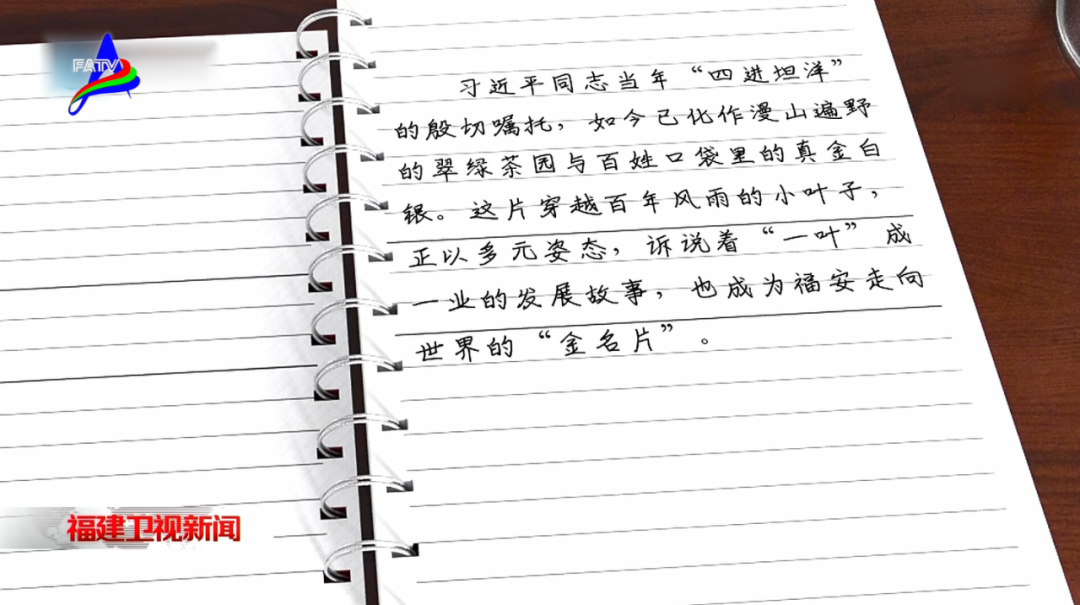 FATV
习近平同志当年“四进坦洋”
的殷切嘱托，如今已化作漫山遍野
的翠绿茶园与百姓口袋里的真金白
银。这片穿越百年风雨的小叶子，
正以多元姿态，诉说着“一叶”成
一业的发展故事，也成为福安走向
世界的“金名片”。
福建卫视新闻